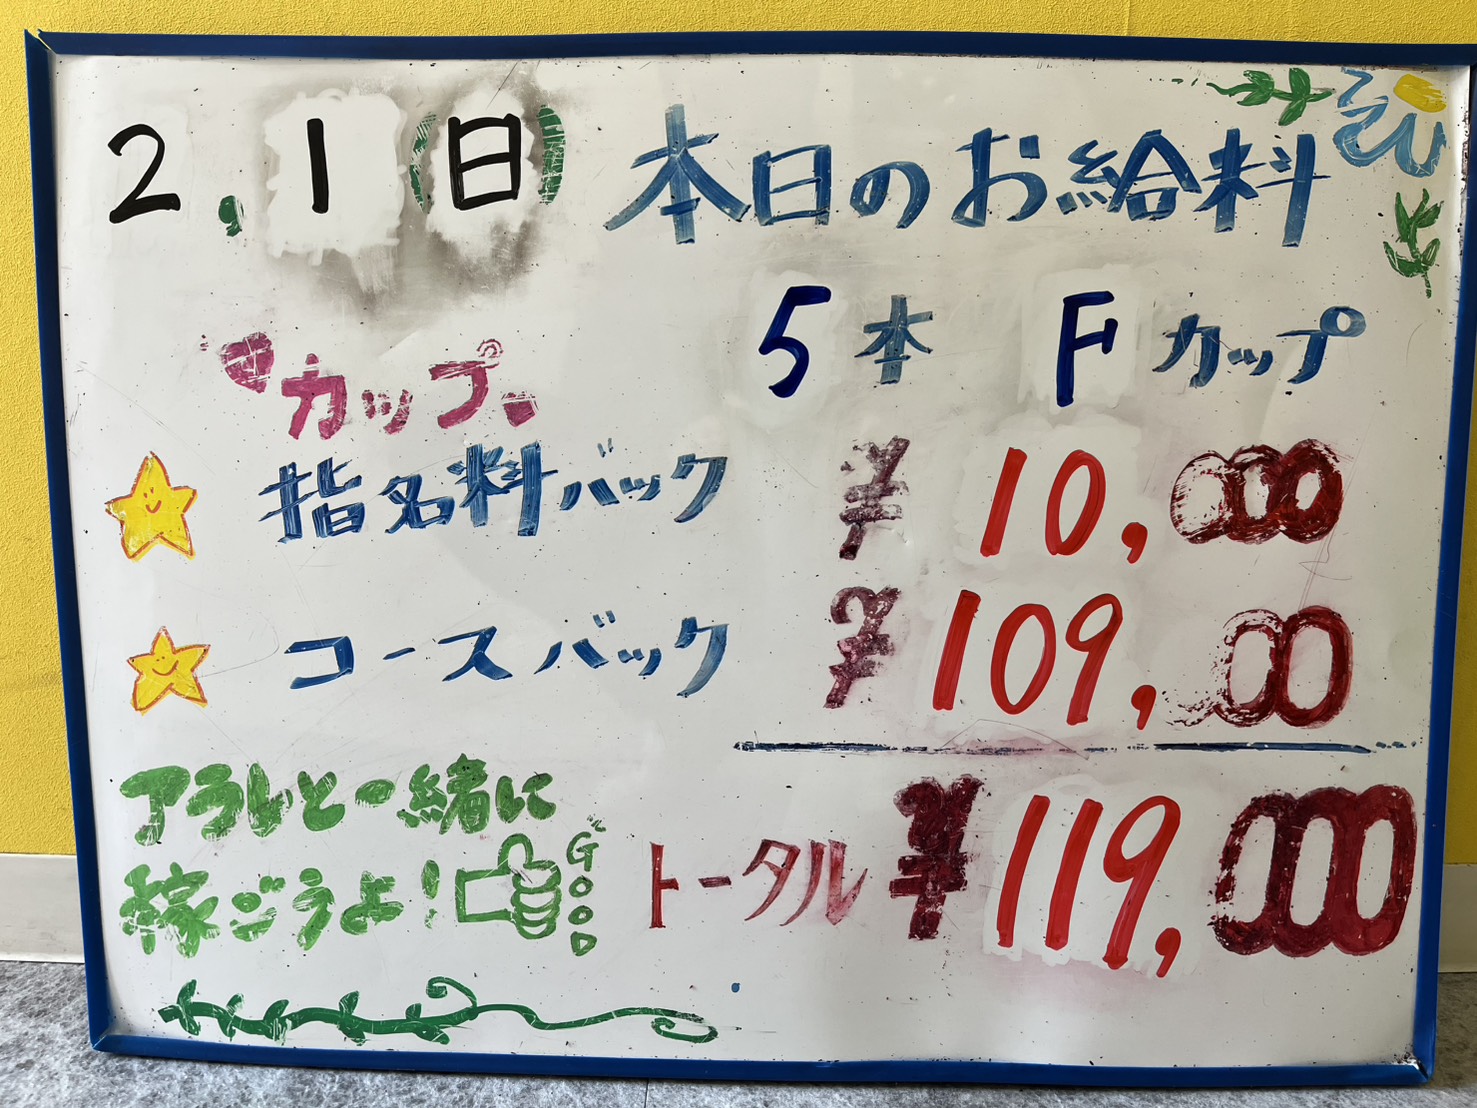 2.1(日) 本日のお給料
5本 Fカップ
カップ
指名料バック ¥10,000
コースバック ¥109,000
トータル ¥119,000
アラレと一緒に
稼ごうよ! GOOD